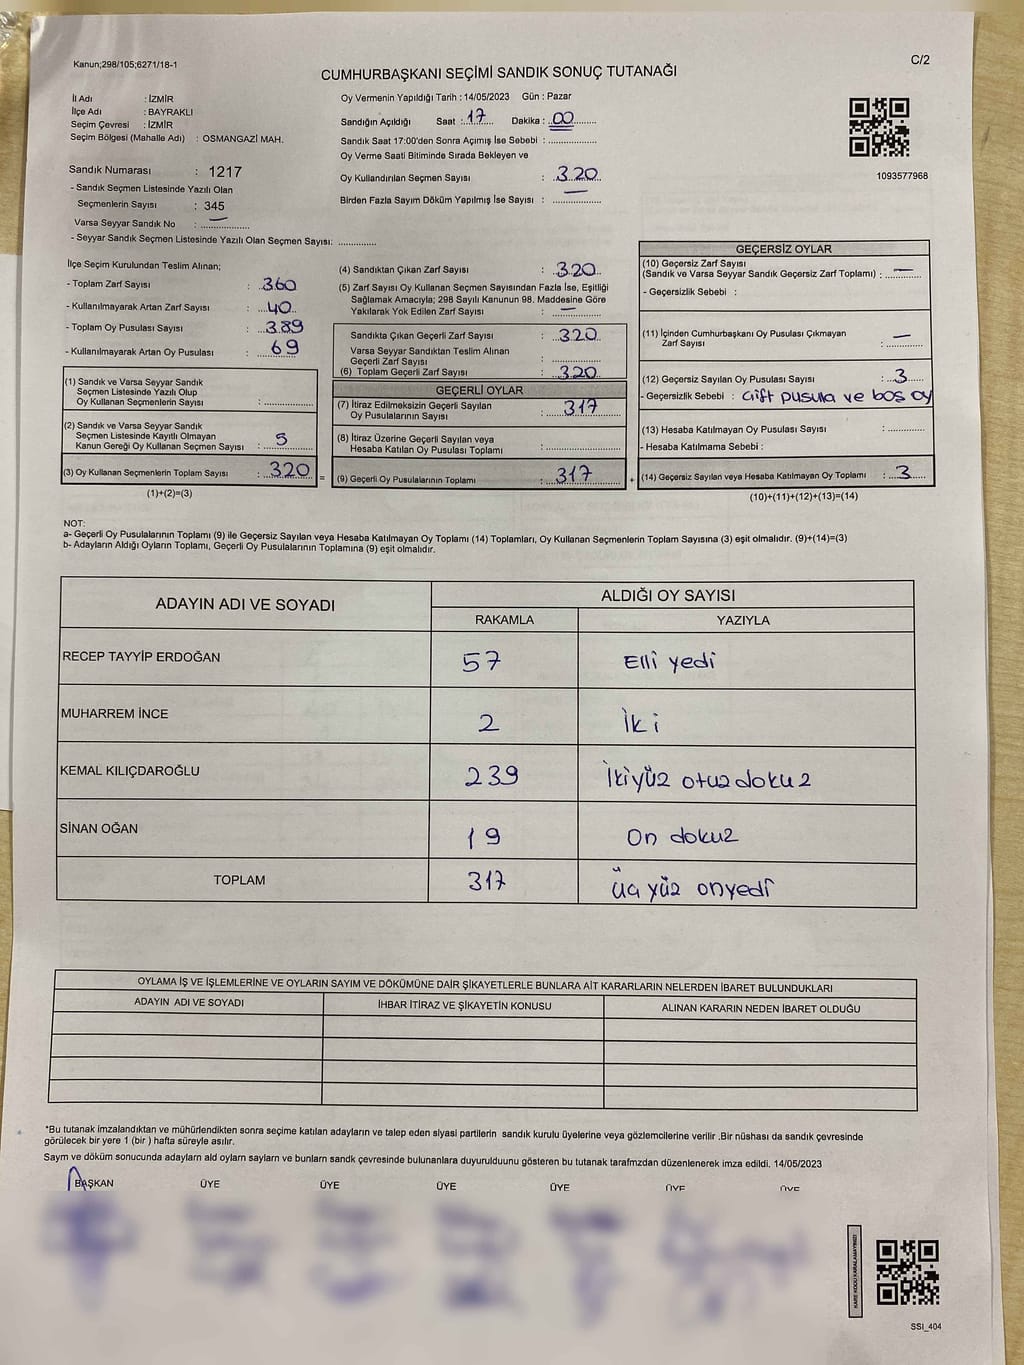 Kanun;298/105;6271/18-1
C/2
CUMHURBAŞKANI SEÇİMİ SANDIK SONUÇ TUTANAĞI
İl Adı : İZMİR
İlçe Adı : BAYRAKLI
Seçim Çevresi : İZMİR
Seçim Bölgesi (Mahalle Adı) : OSMANGAZİ MAH.
Sandık Numarası : 1217
- Sandık Seçmen Listesinde Yazılı Olan
Seçmenlerin Sayısı : 345
Varsa Seyyar Sandık No : —
- Seyyar Sandık Seçmen Listesinde Yazılı Olan Seçmen Sayısı: ..............
Oy Vermenin Yapıldığı Tarih : 14/05/2023 Gün : Pazar
Sandığın Açıldığı Saat : 17 Dakika : 00
Sandık Saat 17:00'den Sonra Açımış İse Sebebi : ..................
Oy Verme Saati Bitiminde Sırada Bekleyen ve
Oy Kullandırılan Seçmen Sayısı : 320
Birden Fazla Sayım Döküm Yapılmış İse Sayısı : —
1093577968
İlçe Seçim Kurulundan Teslim Alınan;
- Toplam Zarf Sayısı : 360
- Kullanılmayarak Artan Zarf Sayısı : 40
- Toplam Oy Pusulası Sayısı : 389
- Kullanılmayarak Artan Oy Pusulası : 69
(1) Sandık ve Varsa Seyyar Sandık
Seçmen Listesinde Yazılı Olup
Oy Kullanan Seçmenlerin Sayısı : ..............
(2) Sandık ve Varsa Seyyar Sandık
Seçmen Listesinde Kayıtlı Olmayan
Kanun Gereği Oy Kullanan Seçmen Sayısı : 5
(3) Oy Kullanan Seçmenlerin Toplam Sayısı : 320 =
(1)+(2)=(3)
(4) Sandıktan Çıkan Zarf Sayısı : 320
(5) Zarf Sayısı Oy Kullanan Seçmen Sayısından Fazla İse, Eşitliği
Sağlamak Amacıyla; 298 Sayılı Kanunun 98. Maddesine Göre
Yakılarak Yok Edilen Zarf Sayısı : —
Sandıkta Çıkan Geçerli Zarf Sayısı : 320
Varsa Seyyar Sandıktan Teslim Alınan
Geçerli Zarf Sayısı :
(6) Toplam Geçerli Zarf Sayısı : 320
GEÇERLİ OYLAR
(7) İtiraz Edilmeksizin Geçerli Sayılan
Oy Pusulalarının Sayısı : 317
(8) İtiraz Üzerine Geçerli Sayılan veya
Hesaba Katılan Oy Pusulası Toplamı : ..................
(9) Geçerli Oy Pusulalarının Toplamı : 317 +
GEÇERSİZ OYLAR
(10) Geçersiz Zarf Sayısı
(Sandık ve Varsa Seyyar Sandık Geçersiz Zarf Toplamı) : —
- Geçersizlik Sebebi :
(11) İçinden Cumhurbaşkanı Oy Pusulası Çıkmayan
Zarf Sayısı : —
(12) Geçersiz Sayılan Oy Pusulası Sayısı : 3
- Geçersizlik Sebebi : Çift pusula ve boş oy
(13) Hesaba Katılmayan Oy Pusulası Sayısı : ..............
- Hesaba Katılmama Sebebi :
(14) Geçersiz Sayılan veya Hesaba Katılmayan Oy Toplamı : 3
(10)+(11)+(12)+(13)=(14)
NOT:
a- Geçerli Oy Pusulalarının Toplamı (9) ile Geçersiz Sayılan veya Hesaba Katılmayan Oy Toplamı (14) Toplamları, Oy Kullanan Seçmenlerin Toplam Sayısına (3) eşit olmalıdır. (9)+(14)=(3)
b- Adayların Aldığı Oyların Toplamı, Geçerli Oy Pusulalarının Toplamına (9) eşit olmalıdır.
ADAYIN ADI VE SOYADI ALDIĞI OY SAYISI
RAKAMLA YAZIYLA
RECEP TAYYİP ERDOĞAN 57 Elli yedi
MUHARREM İNCE 2 İki
KEMAL KILIÇDAROĞLU 239 İkiyüz otuz dokuz
SİNAN OĞAN 19 On dokuz
TOPLAM 317 Üç yüz onyedi
OYLAMA İŞ VE İŞLEMLERİNE VE OYLARIN SAYIM VE DÖKÜMÜNE DAİR ŞİKAYETLERLE BUNLARA AİT KARARLARIN NELERDEN İBARET BULUNDUKLARI
ADAYIN ADI VE SOYADI İHBAR İTİRAZ VE ŞİKAYETİN KONUSU ALINAN KARARIN NEDEN İBARET OLDUĞU
*Bu tutanak imzalandıktan ve mühürlendikten sonra seçime katılan adayların ve talep eden siyasi partilerin sandık kurulu üyelerine veya gözlemcilerine verilir .Bir nüshası da sandık çevresinde
görülecek bir yere 1 (bir ) hafta süreyle asılır.
Saym ve döküm sonucunda adaylarn ald oylarn saylarn ve bunlarn sandk çevresinde bulunanlara duyurulduunu gösteren bu tutanak tarafmzdan düzenlenerek imza edildi. 14/05/2023
BAŞKAN ÜYE ÜYE ÜYE ÜYE ÜYE ÜYE
KARE KODU KARALAMAYINIZ!
SSI_404